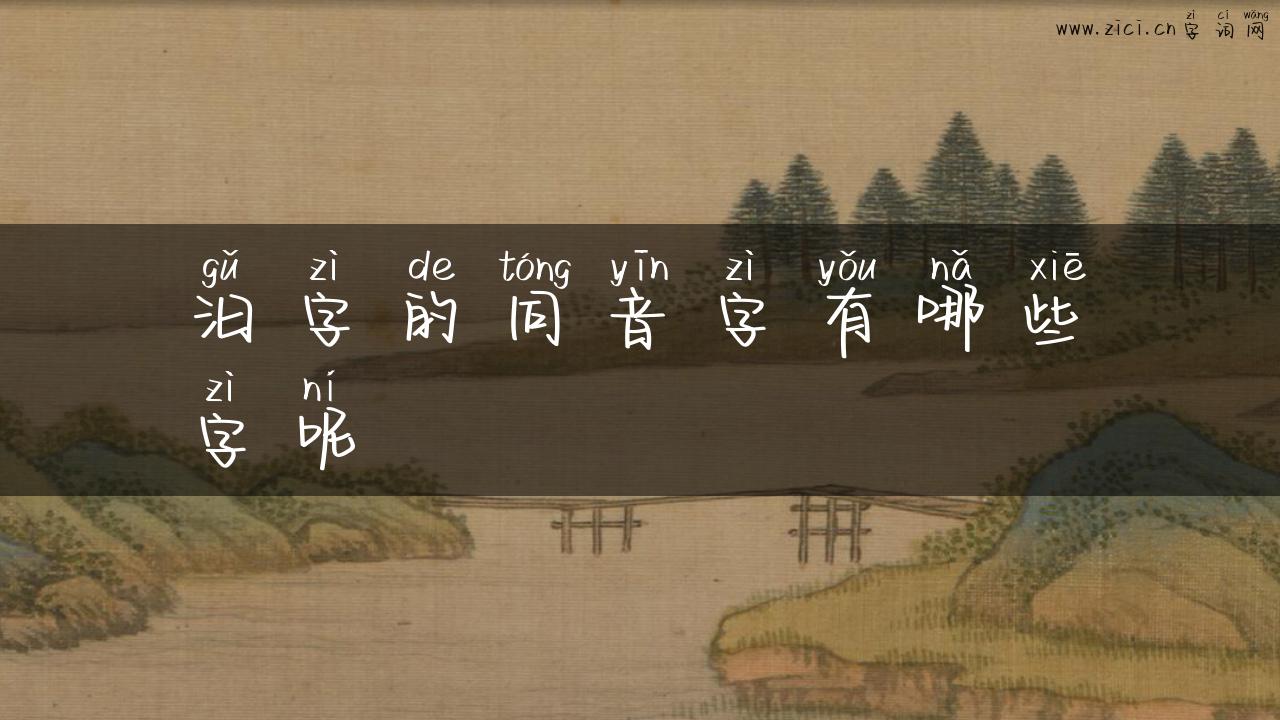 www.zici.cn zì cí wǎng 字词网
gǔ zì de tóng yīn zì yǒu nǎ xiē
汩字的同音字有哪些
zì ní
字呢